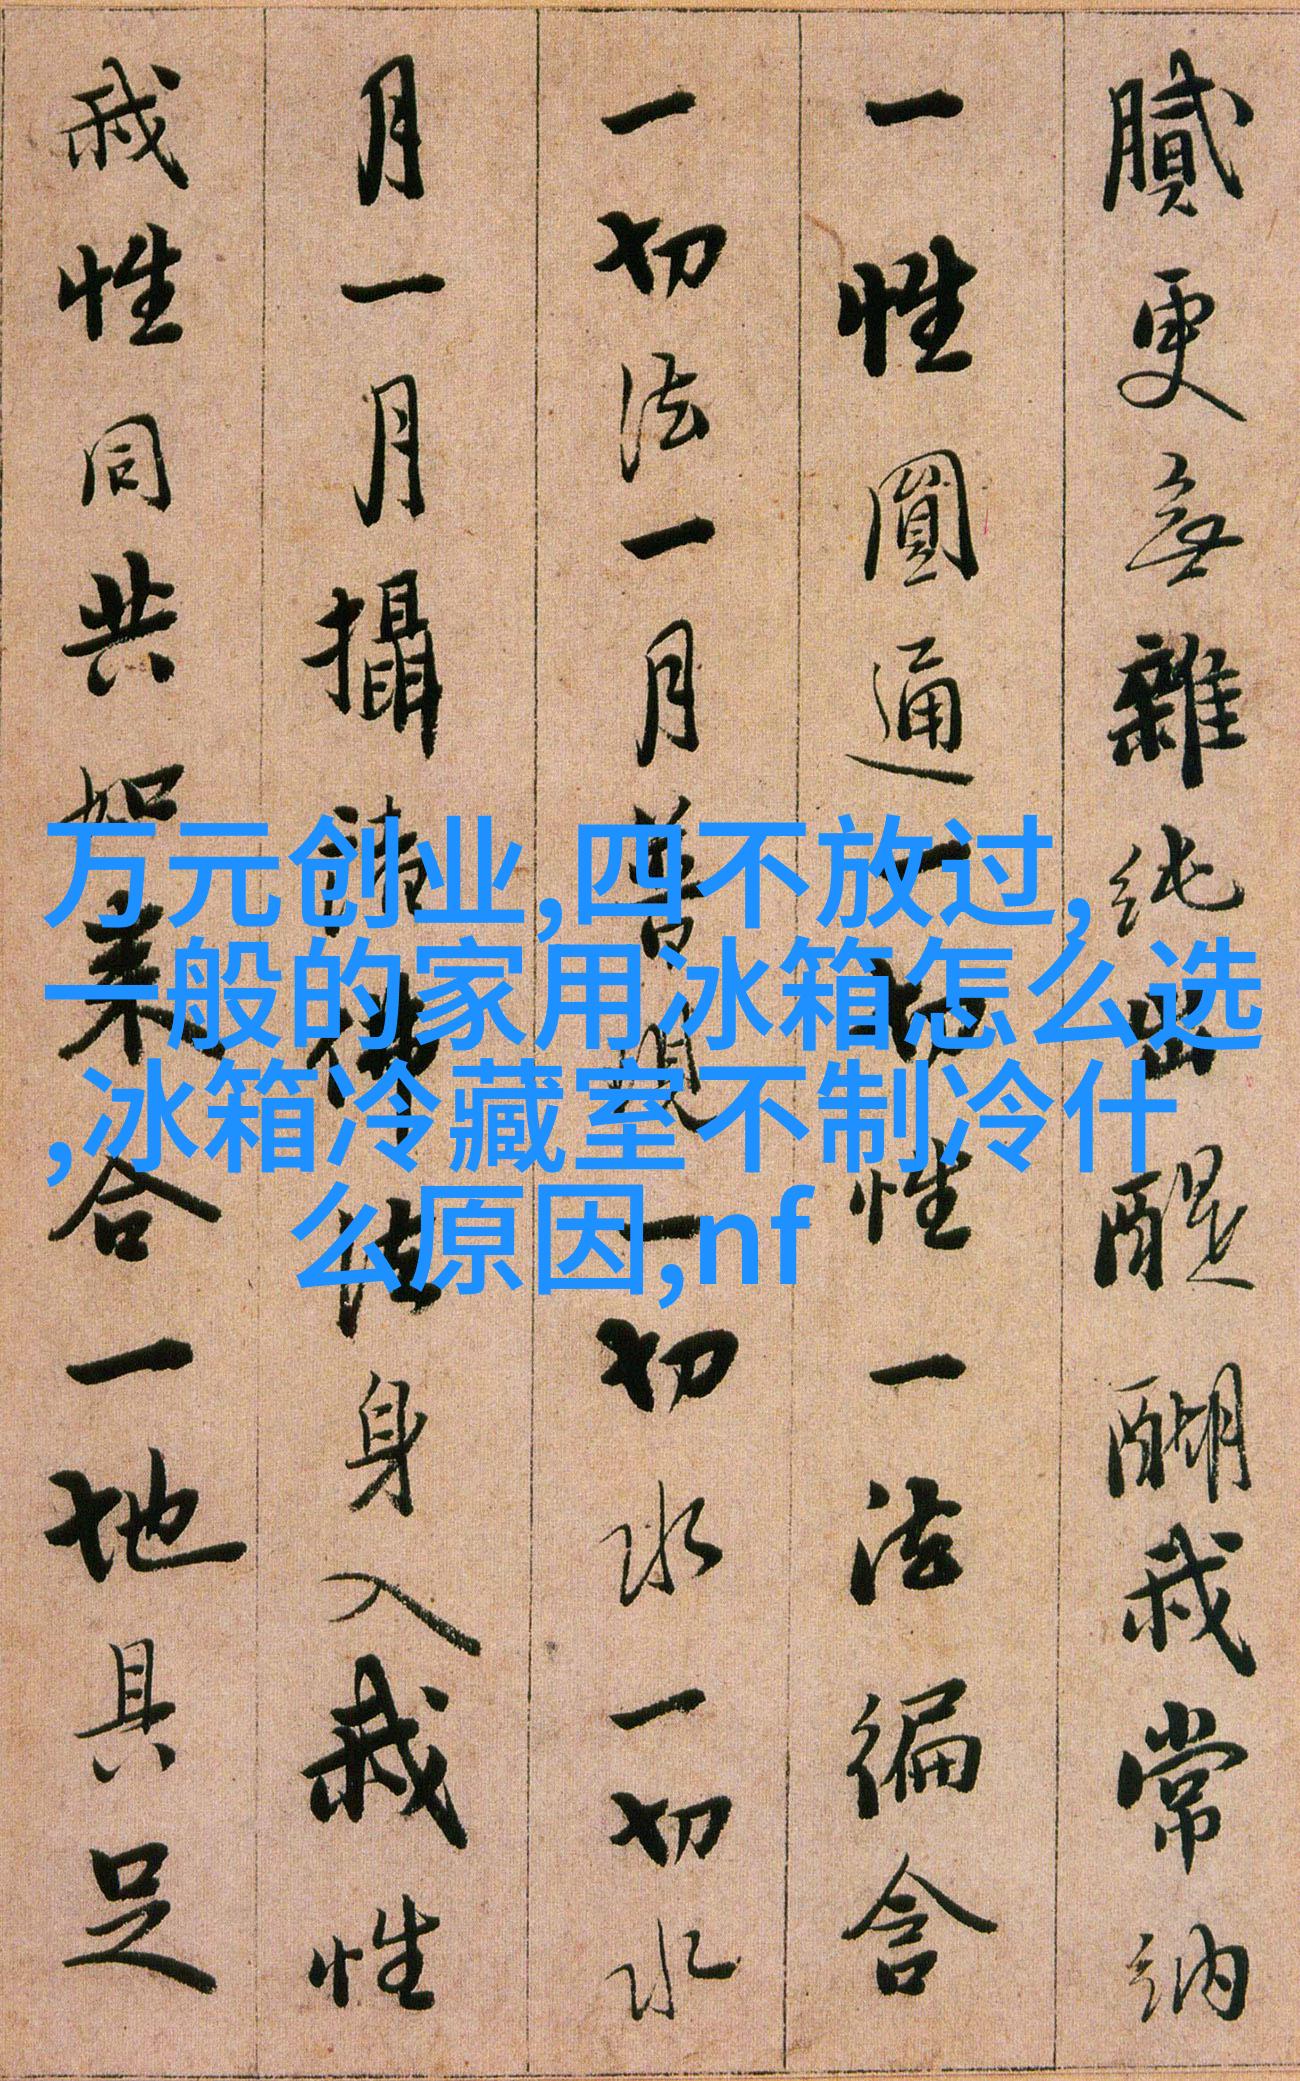 膩更無雜純出醍醐我常納
一性圓通一切性一法徧含
一切法一月普現一切水一切水
月一月攝諸佛法身入我性
我性同共如來合一地具足
万元创业,四不放过,
一般的家用冰箱怎么选
,冰箱冷藏室不制冷什
么原因,nf